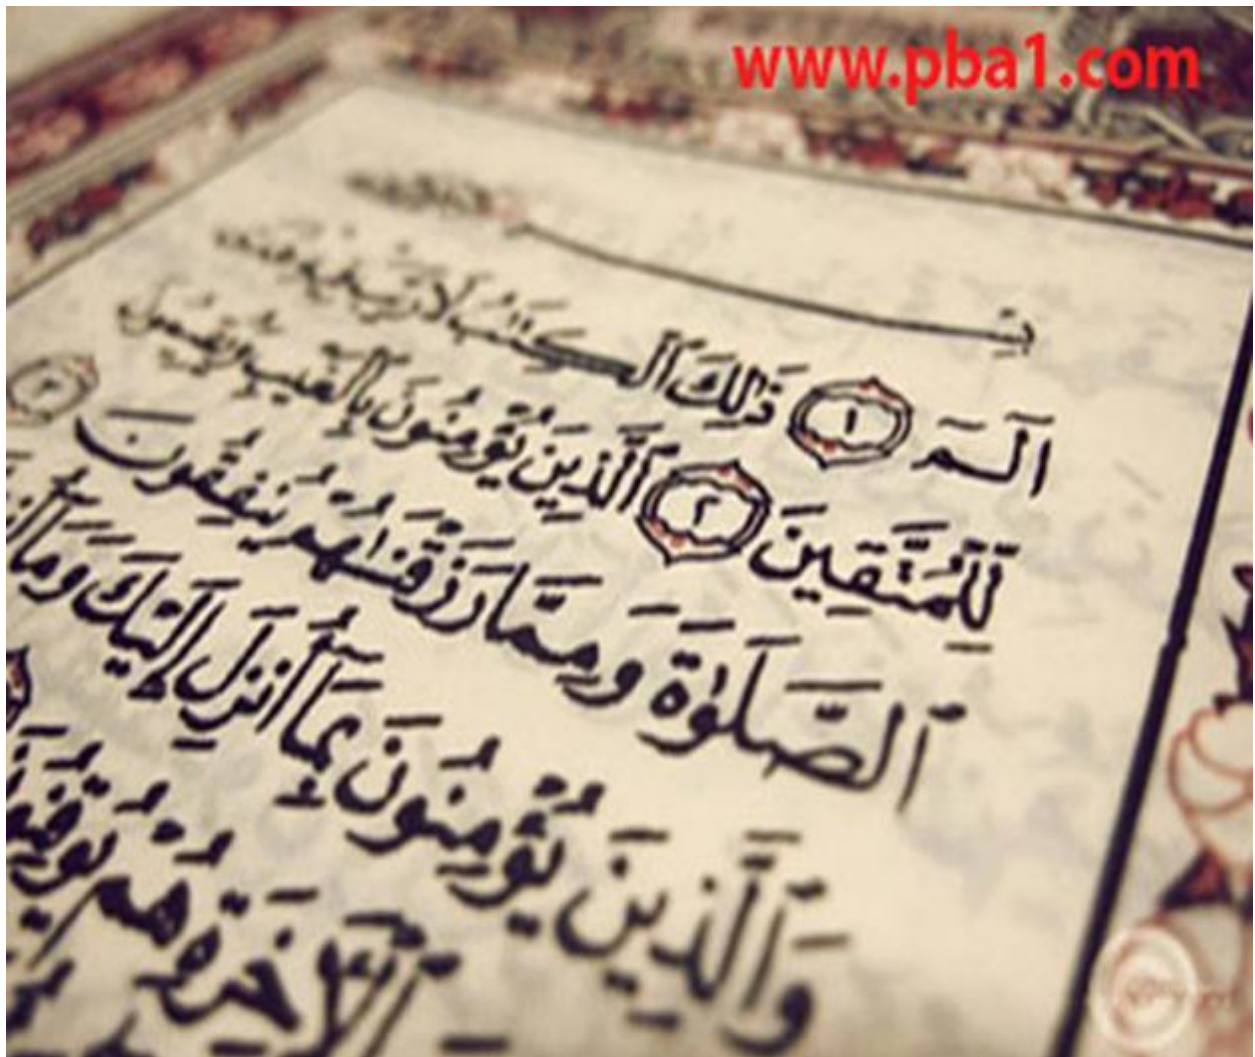 www.pba1.com
الٓمٓ ١ ذَٰلِكَ ٱلْكِتَٰبُ لَا رَيْبَ فِيهِ هُدًى
لِّلْمُتَّقِينَ ٢ ٱلَّذِينَ يُؤْمِنُونَ بِٱلْغَيْبِ وَيُقِيمُونَ
ٱلصَّلَوٰةَ وَمِمَّا رَزَقْنَٰهُمْ يُنفِقُونَ ٣
وَٱلَّذِينَ يُؤْمِنُونَ بِمَآ أُنزِلَ إِلَيْكَ وَمَآ
ٱلْأَخِرَةِ هُمْ